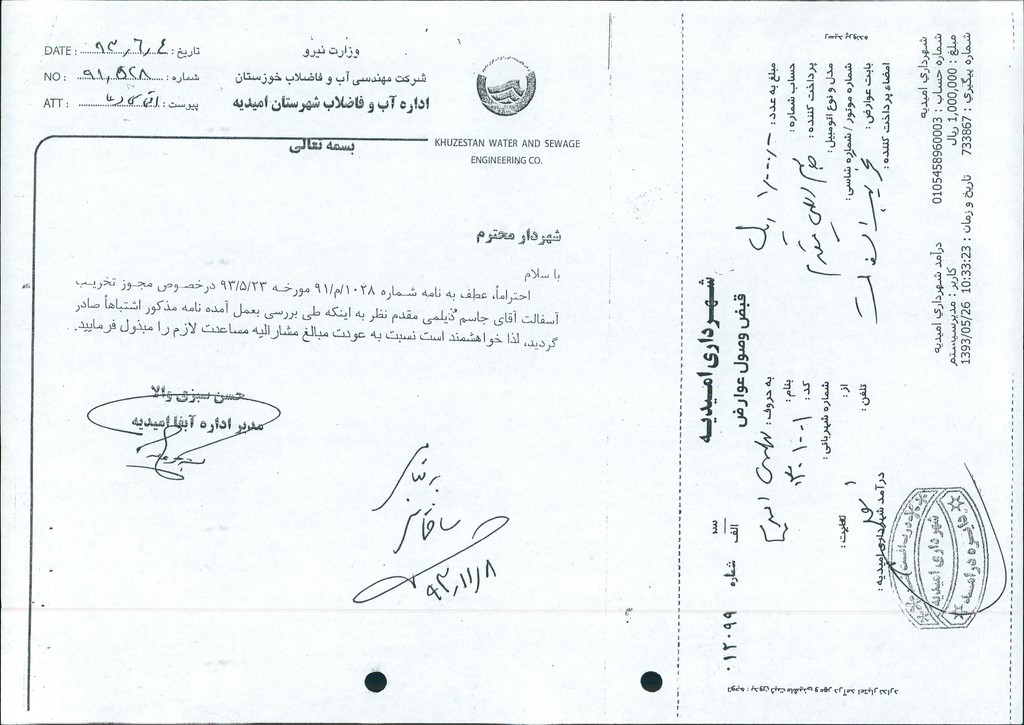 وزارت نیرو
شرکت مهندسی آب و فاضلاب خوزستان
اداره آب و فاضلاب شهرستان امیدیه
تاریخ : ۹۳/۶/۴ DATE :
شماره : NO :
پیوست : ATT :
KHUZESTAN WATER AND SEWAGE
ENGINEERING CO.
بسمه تعالی
شهردار محترم
با سلام
احتراماً، عطف به نامه شماره ۱۰۲۸/م/۹۱ مورخه ۹۳/۵/۲۳ درخصوص مجوز تخریب
آسفالت آقای جاسم دیلمی مقدم نظر به اینکه طی بررسی بعمل آمده نامه مذکور اشتباهاً صادر
گردید، لذا خواهشمند است نسبت به عودت مبالغ مشارالیه مساعدت لازم را مبذول فرمایید.
حسن سبزی والا
مدیر اداره آبفا امیدیه
۹۳/۱۱/۸
شهرداری امیدیه
قبض وصول عوارض
سه
الف
شماره ۰۱۲۰۹۹
مبلغ به عدد: ۱/۰۰۰/۰۰۰ ریال
به حروف:
حساب شماره:
بنام:
کد: ۳۰۱۰۰۱
پرداخت کننده: جاسم دیلمی مقدم
مدل و نوع اتومبیل:
شماره شهربانی:
شماره موتور / شماره شاسی:
از:
بابت عوارض: تخریب آسفالت
تلفن:
امضاء پرداخت کننده:
درآمد شهرداری امیدیه:
شهرداری امیدیه
دایره درآمد
شهرداری امیدیه
درآمد شهرداری امیدیه
شماره حساب : 0105458960003
مبلغ : 1,000,000 ریال
کاربر : مدیرسیستم
شماره پیگیری : 733867
تاریخ و زمان : 10:33:23 1393/05/26